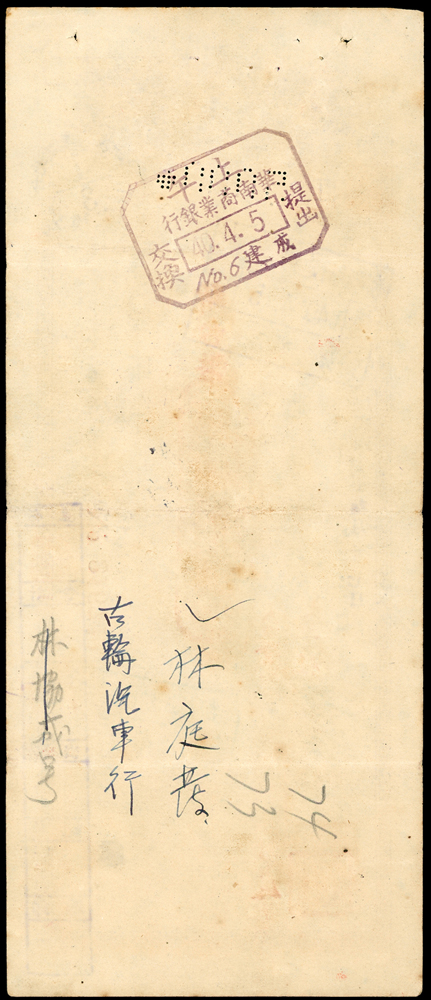 上午
華南商業銀行
提出
交換
40.4.5
No.6 建成
林庭發
古輪汽車行
林協成号
74
73